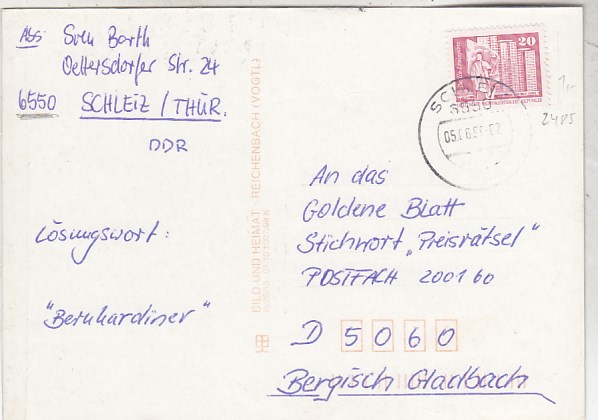 Abs: Sven Barth
Oettersdorfer Str. 24
6550 SCHLEIZ / THÜR.
DDR
Lösungswort:
"Bernhardiner"
BILD UND HEIMAT REICHENBACH (VOGTL)
20
SCHLEIZ
An das
Goldene Blatt
Stichwort „Preisrätsel"
POSTFACH 200160
D 5060
Bergisch Gladbach
1,-
2485